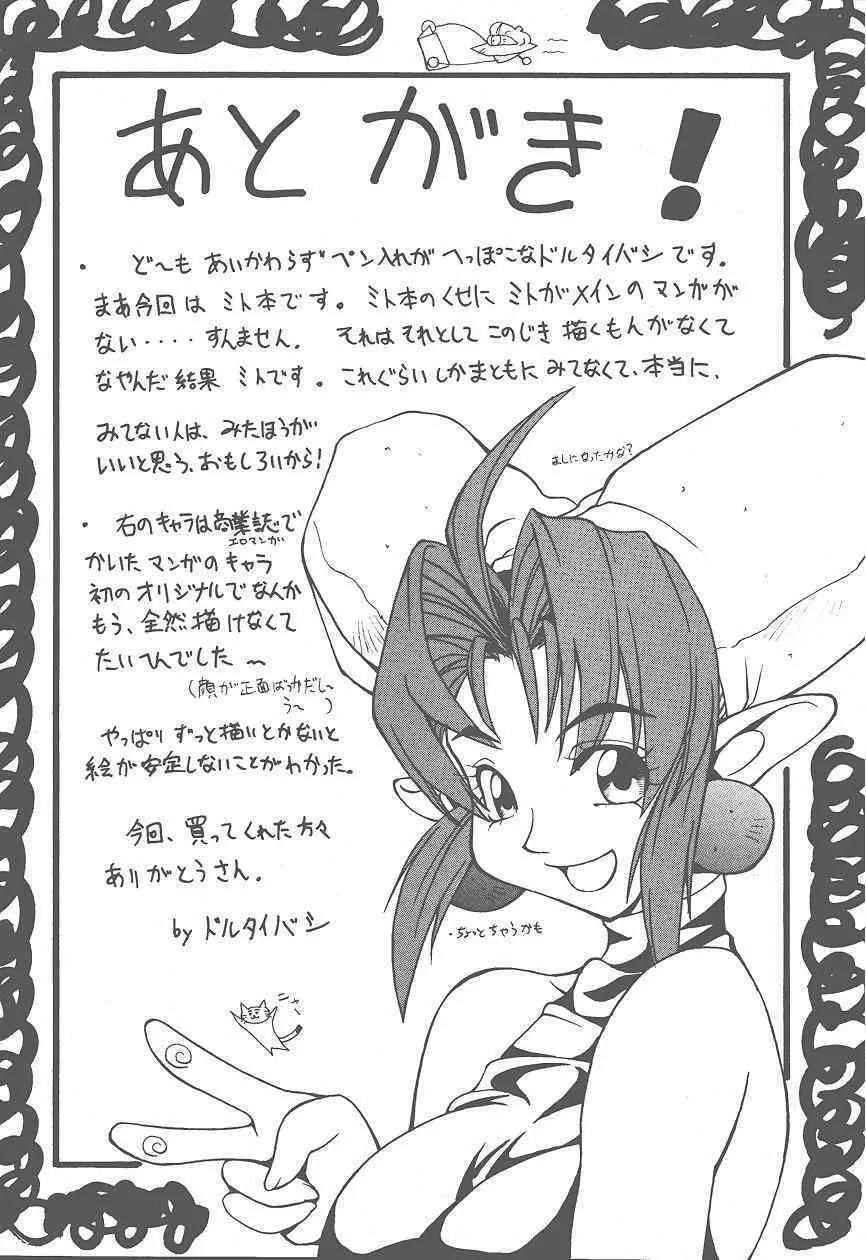 あとがき!
・ ど〜も あいかわらず ペン入れが へっぽこなドルタイバシです。
まあ今回は ミト本です。ミト本のくせに ミトがメインの マンガが
ない・・・・すんません。 それはそれとして このじき 描くもんがなくて
なやんだ結果 ミトです。これぐらいしかまともに みてなくて、本当に、
みてない人は、みたほうが
いいと思う、おもしろいから!
ましになったかな?
・ 右のキャラは商業誌で
エロマンガ
かいた マンガのキャラ
初のオリジナルでなんか
もう、全然描けなくて
たいへんでした〜
(顔が正面ばっかだし〜
う〜)
やっぱり ずっと描いとかないと
絵が安定しないことがわかった。
今回、買ってくれた方々
ありがとうさん。
by ドルタイバシ
・ちょっとちゃうかも
ニャー